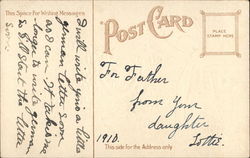 This Space For Written Messages
POST CARD
PLACE
STAMP HERE
I will write you a little
german letter soon
as I can. It takes me
longer to write german
so I'll start the letter
soon
For Father
from your
daughter
Lottie.
1910.
This side for the Address only